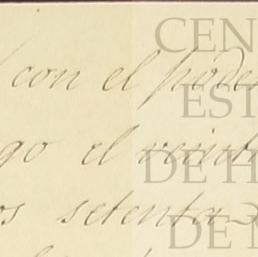 con el poder
CEN
EST
go el veint
DE H
os setenta
DE M